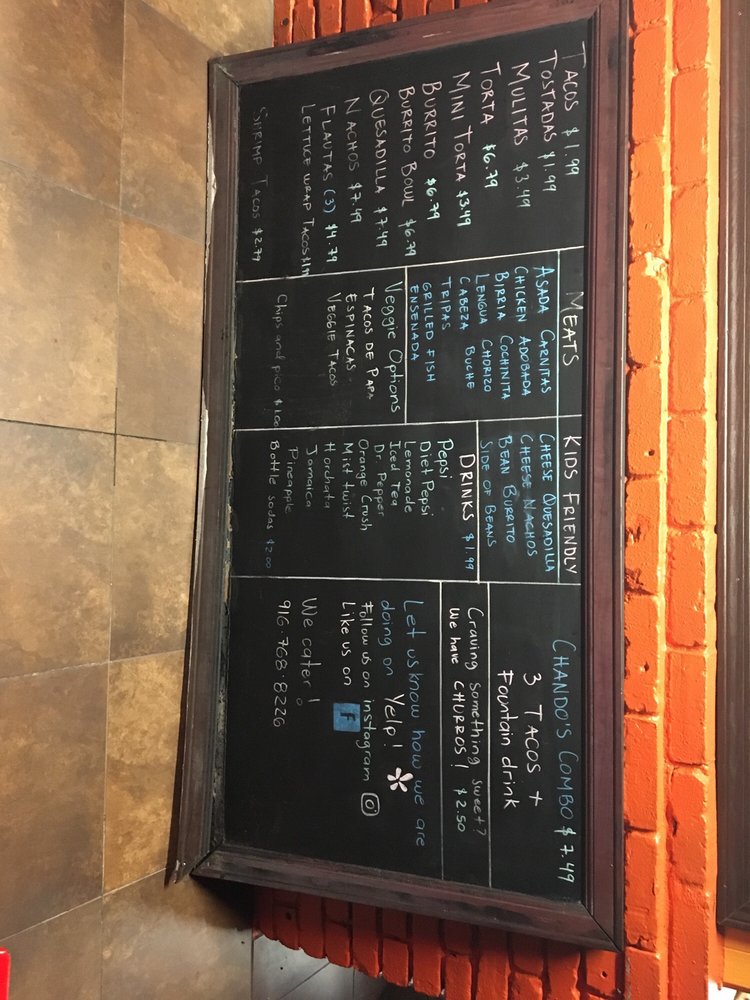 TACOS $1.99
TOSTADAS $1.99
MULITAS $3.49
TORTA $6.79
MINI TORTA $3.49
BURRITO $6.79
BURRITO BOWL $6.79
QUESADILLA $7.49
NACHOS $7.49
FLAUTAS (3) $4.79
LETTICE WRAP TACOS $1.99
SHRIMP TACOS $2.79
MEATS
ASADA CARNITAS
CHICKEN ADOBADA
BIRRIA COCHINITA
LENGUA CHORIZO
CABEZA BUCHE
TRIPAS
GRILLED FISH
ENSENADA
Veggie Options
TACOS DE PAPA
ESPINACAS
VEGGIE TACOS
Chips and pico $1.00
KIDS FRIENDLY
CHEESE QUESADILLA
CHEESE NACHOS
BEAN BURRITO
SIDE OF BEANS
DRINKS $1.99
Pepsi
Diet Pepsi
Lemonade
Iced Tea
Dr. Pepper
Orange Crush
Mist twist
Horchata
Jamaica
Pineapple
Bottle sodas $2.00
CHANDO'S COMBO $7.49
3 TACOS +
Fountain drink
Craving something sweet?
We have CHURROS! $2.50
Let us know how we are
doing on Yelp!
Follow us on instagram
Like us on F
We cater!
916.768.8226